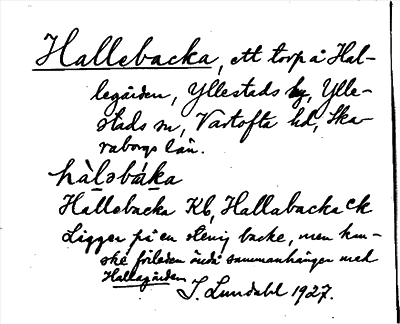 Hallebacka, ett torp å Hal-
legården, Yllestads by, Ylle-
stads sn, Vartofta hd, Ska-
raborgs län.
hàləbáka
Hallebacka Kb, Hallabacka ck
Ligger på en stenig backe, men kan-
ske förleden ändå sammanhänger med
Hallagården
J. Lundahl 1927.